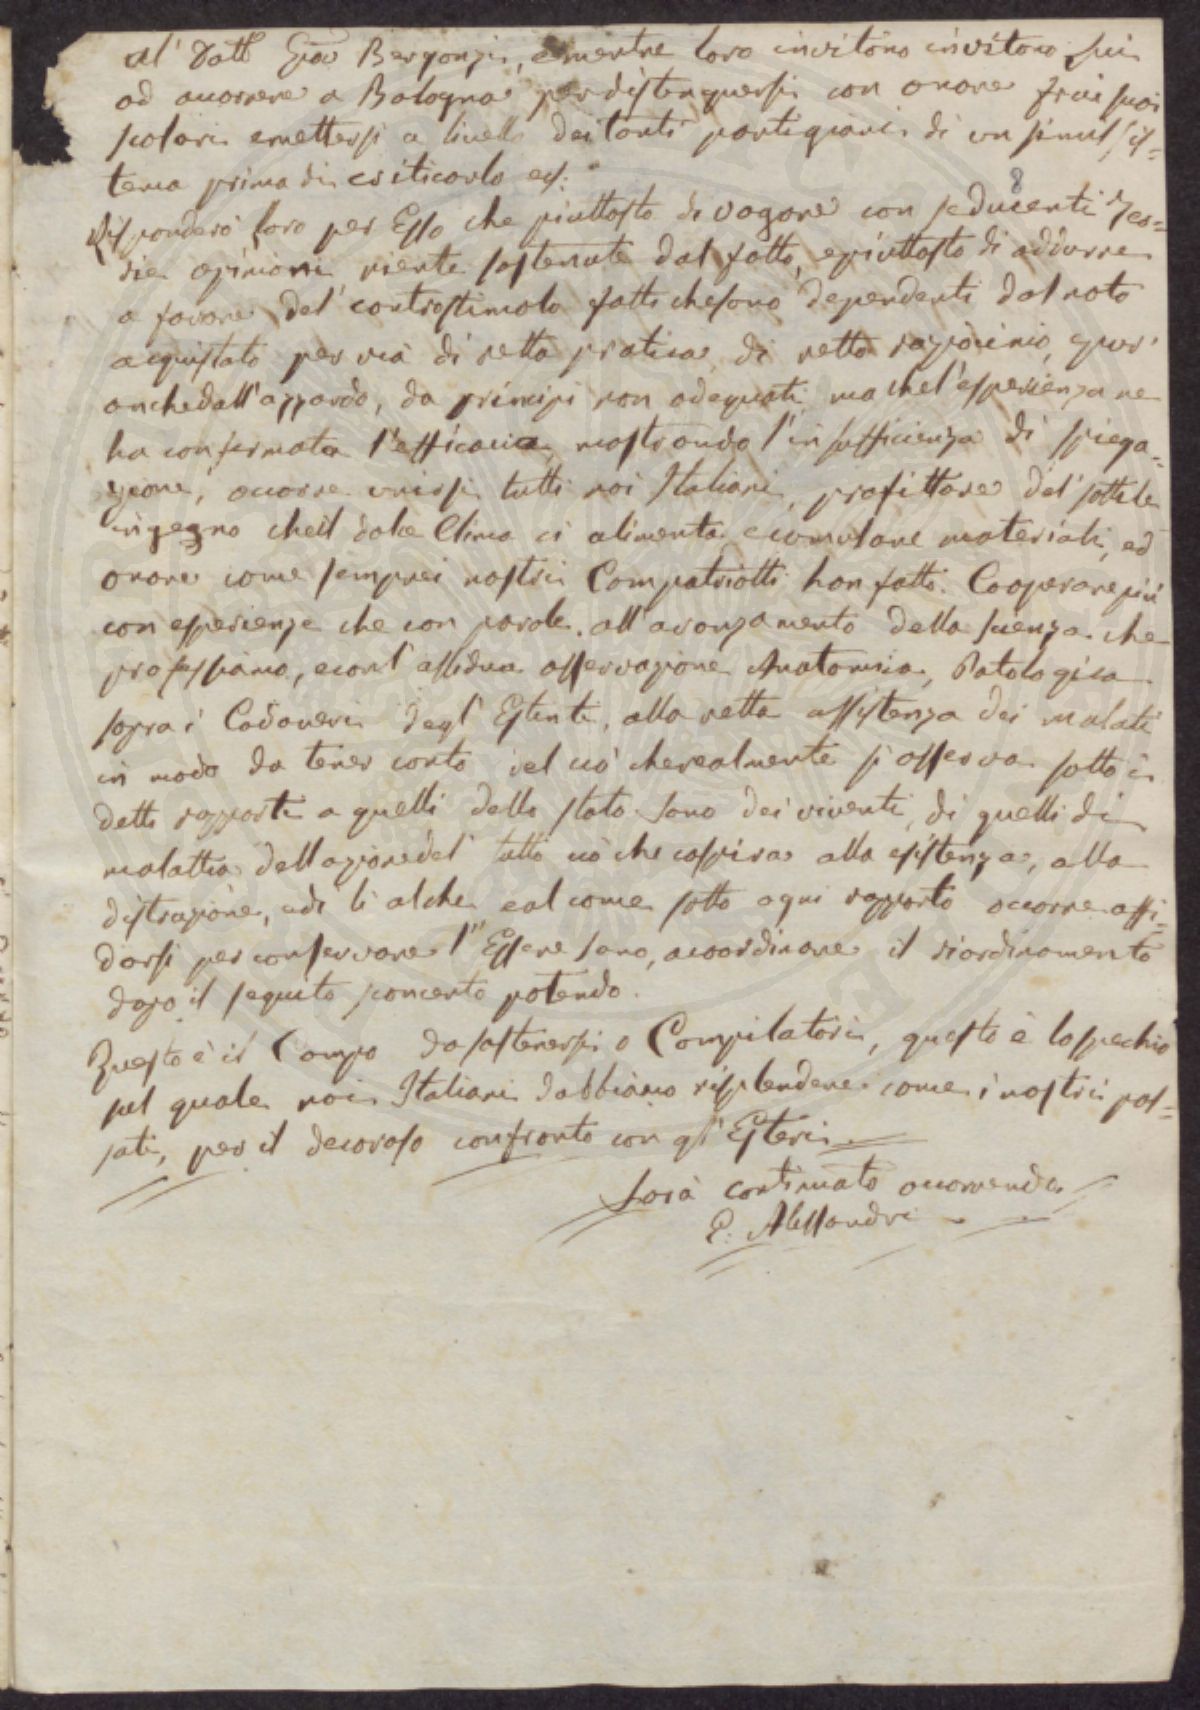 al' Dott Gio Bergonzi, e mentre loro invitono invitono lui
ad accorrere a Bologna per distinguersi con onore frai suoi
scolari emettersi a livello dei tanti partigiani di un simil sis=
tema prima di criticarlo ec:
8
Risponderò loro per Esso che piuttosto di vagare con seducenti Teo=
rie opinioni niente sostenute dal fatto, epiuttosto di addurre
a favore del' controstimolo fatti chesono dependenti dal noto
acquistato per via di retta pratica, di retto raziocinio, epur'
anchedall'azzardo, da principi non adequati, ma chel'esperienza ne
ha confermata l'efficacia, mostrando l'insufficienza di spiega=
zione, occorre unirsi tutti noi Italiani, profittare del' sottile
ingegno cheil dolce Clima ci alimenta ecumulare materiali, ed
onore come semprei nostri Compatriotti han fatto. Cooperare più
con esperienze che con parole all'avanzamento della scienza che
professiamo, econl' assidua osservazione Anatomica, Patologica
sopra i Cadaveri degl' Estinti, alla retta assistenza dei malati
in modo da tener conto del ciò cherealmente si osserva sotto i
detti rapporti a quelli dello stato sano dei viventi, di quelli di
malattia dell azionedel' tutto ciò che cospira alla esistenza, alla
distrazione, edi li alche eal come sotto ogni rapporto occorre affi=
darsi per conservare l'Essere sano, acoordinare il riordinamento
dopo il seguito sconcerto potendo.
Questo è il Campo dasostenersi o Compilatori, questo è lospechio
sul quale noi Italiani dobbiamo risplendere come i nostri pas=
sati, per il decoroso confronto con gl' Esteri
Sarà continuato occorrendo
E. Alessandri